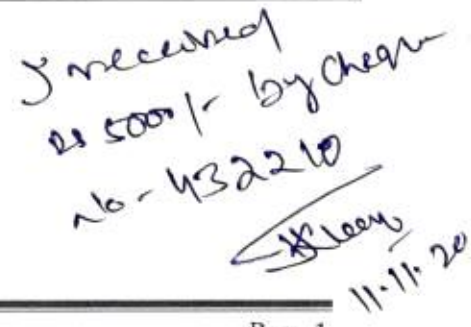 I received
Rs 5000/- by Cheque
No - 432210
11.11.20